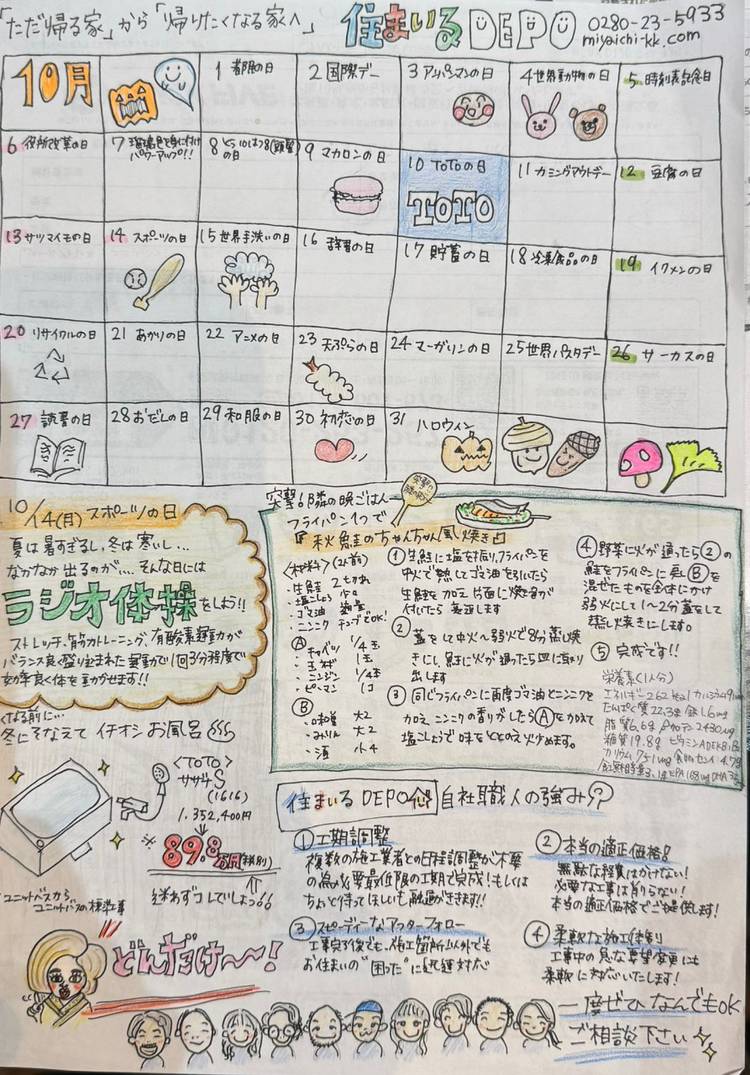 「ただ帰る家」から「帰りたくなる家へ」
住まいるDEPO
0280-23-5933
miyaichi-kk.com
10月
1 都民の日
2 国際デー
3 アンパンマンの日
4 世界動物の日
5 時刻表記念日
6 役所改革の日
8 の日
9 マカロンの日
10 TOTOの日
TOTO
11 カミングアウトデー
12 豆腐の日
13 サツマイモの日
14 スポーツの日
15 世界手洗いの日
16 辞書の日
17 貯蓄の日
18 冷凍食品の日
19 イクメンの日
20 リサイクルの日
21 あかりの日
22 アニメの日
23 天ぷらの日
24 マーガリンの日
25 世界パスタデー
26 サーカスの日
27 読書の日
28 おだしの日
29 和服の日
30 初恋の日
31 ハロウィン
10/14(月) スポーツの日
夏は暑すぎるし、冬は寒いし...
なかなか出るのが.... そんな日には
ラジオ体操をしよう!!
ストレッチ、筋力トレーニング、有酸素運動が
バランス良く盛り込まれた運動で1回3分程度で
効率良く体を動かせます!!
突撃!隣の晩ごはん
フライパン1つで
『秋鮭のちゃんちゃん風焼き』
<材料> (2人前)
・生鮭 2切れ
・塩こしょう 少々
・ゴマ油 適量
・ニンニク チューブでOK!
Ⓐ
・キャベツ 1/4玉
・玉ねぎ 1玉
・ニンジン 1/4本
・ピーマン 1コ
Ⓑ
・味噌 大2
・みりん 大2
・酒 小4
① 生鮭に塩を振り、フライパンを
中火で熱してゴマ油を引いたら
生鮭を加え 片面に焼き色が
付いたら裏返します
② 蓋をして中火〜弱火で8分蒸し焼
きにし、鮭に火が通ったら皿に取り
出します
③ 同じフライパンに再度ゴマ油とニンニクを
加え ニンニクの香りがしたらⒶを加えて
塩こしょうで味をととのえ炒めます。
④ 野菜に火が通ったら②の
鮭をフライパンに戻しⒷを
混ぜたものを全体にかけ
弱火にして1〜2分蓋をして
蒸し焼きにします。
⑤ 完成です!!
栄養素(1人分)
エネルギー262kcal
たんぱく質22.3g 鉄1.6mg
脂質6.6g
糖質19.8g
カリウム751mg 食物センイ4.7g
寒くなる前に...
冬にそなえて イチオシ お風呂
<TOTO>
サザナS
(1616)
1,352,400円
89.8万円(税別)
迷わずコレでいしょう
ユニットバスから
ユニットバスの標準工事
どんだけ〜!
住まいるDEPO 自社職人の強み?
① 工期調整
複数の施工業者との日程調整が不要
の為必要最低限の工期で完成!もしくは
ちょっと待ってほしいも融通がききます!!
② 本当の適正価格!
無駄な経費はかけない!
必要な工事は削らない!
本当の適正価格でご提供します!
③ スピーディーなアフターフォロー
工事完了後でも、施工箇所以外でも
お住まいの"困った"に迅速対応
④ 柔軟な施工体制
工事中の急な要望変更にも
柔軟に対応いたします!
一度ぜひ なんでもOK
ご相談下さい